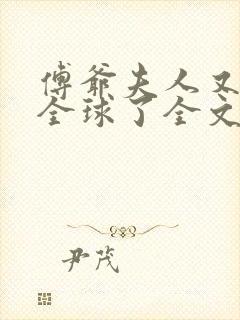 傅爷夫人又
全球了全文
尹茂